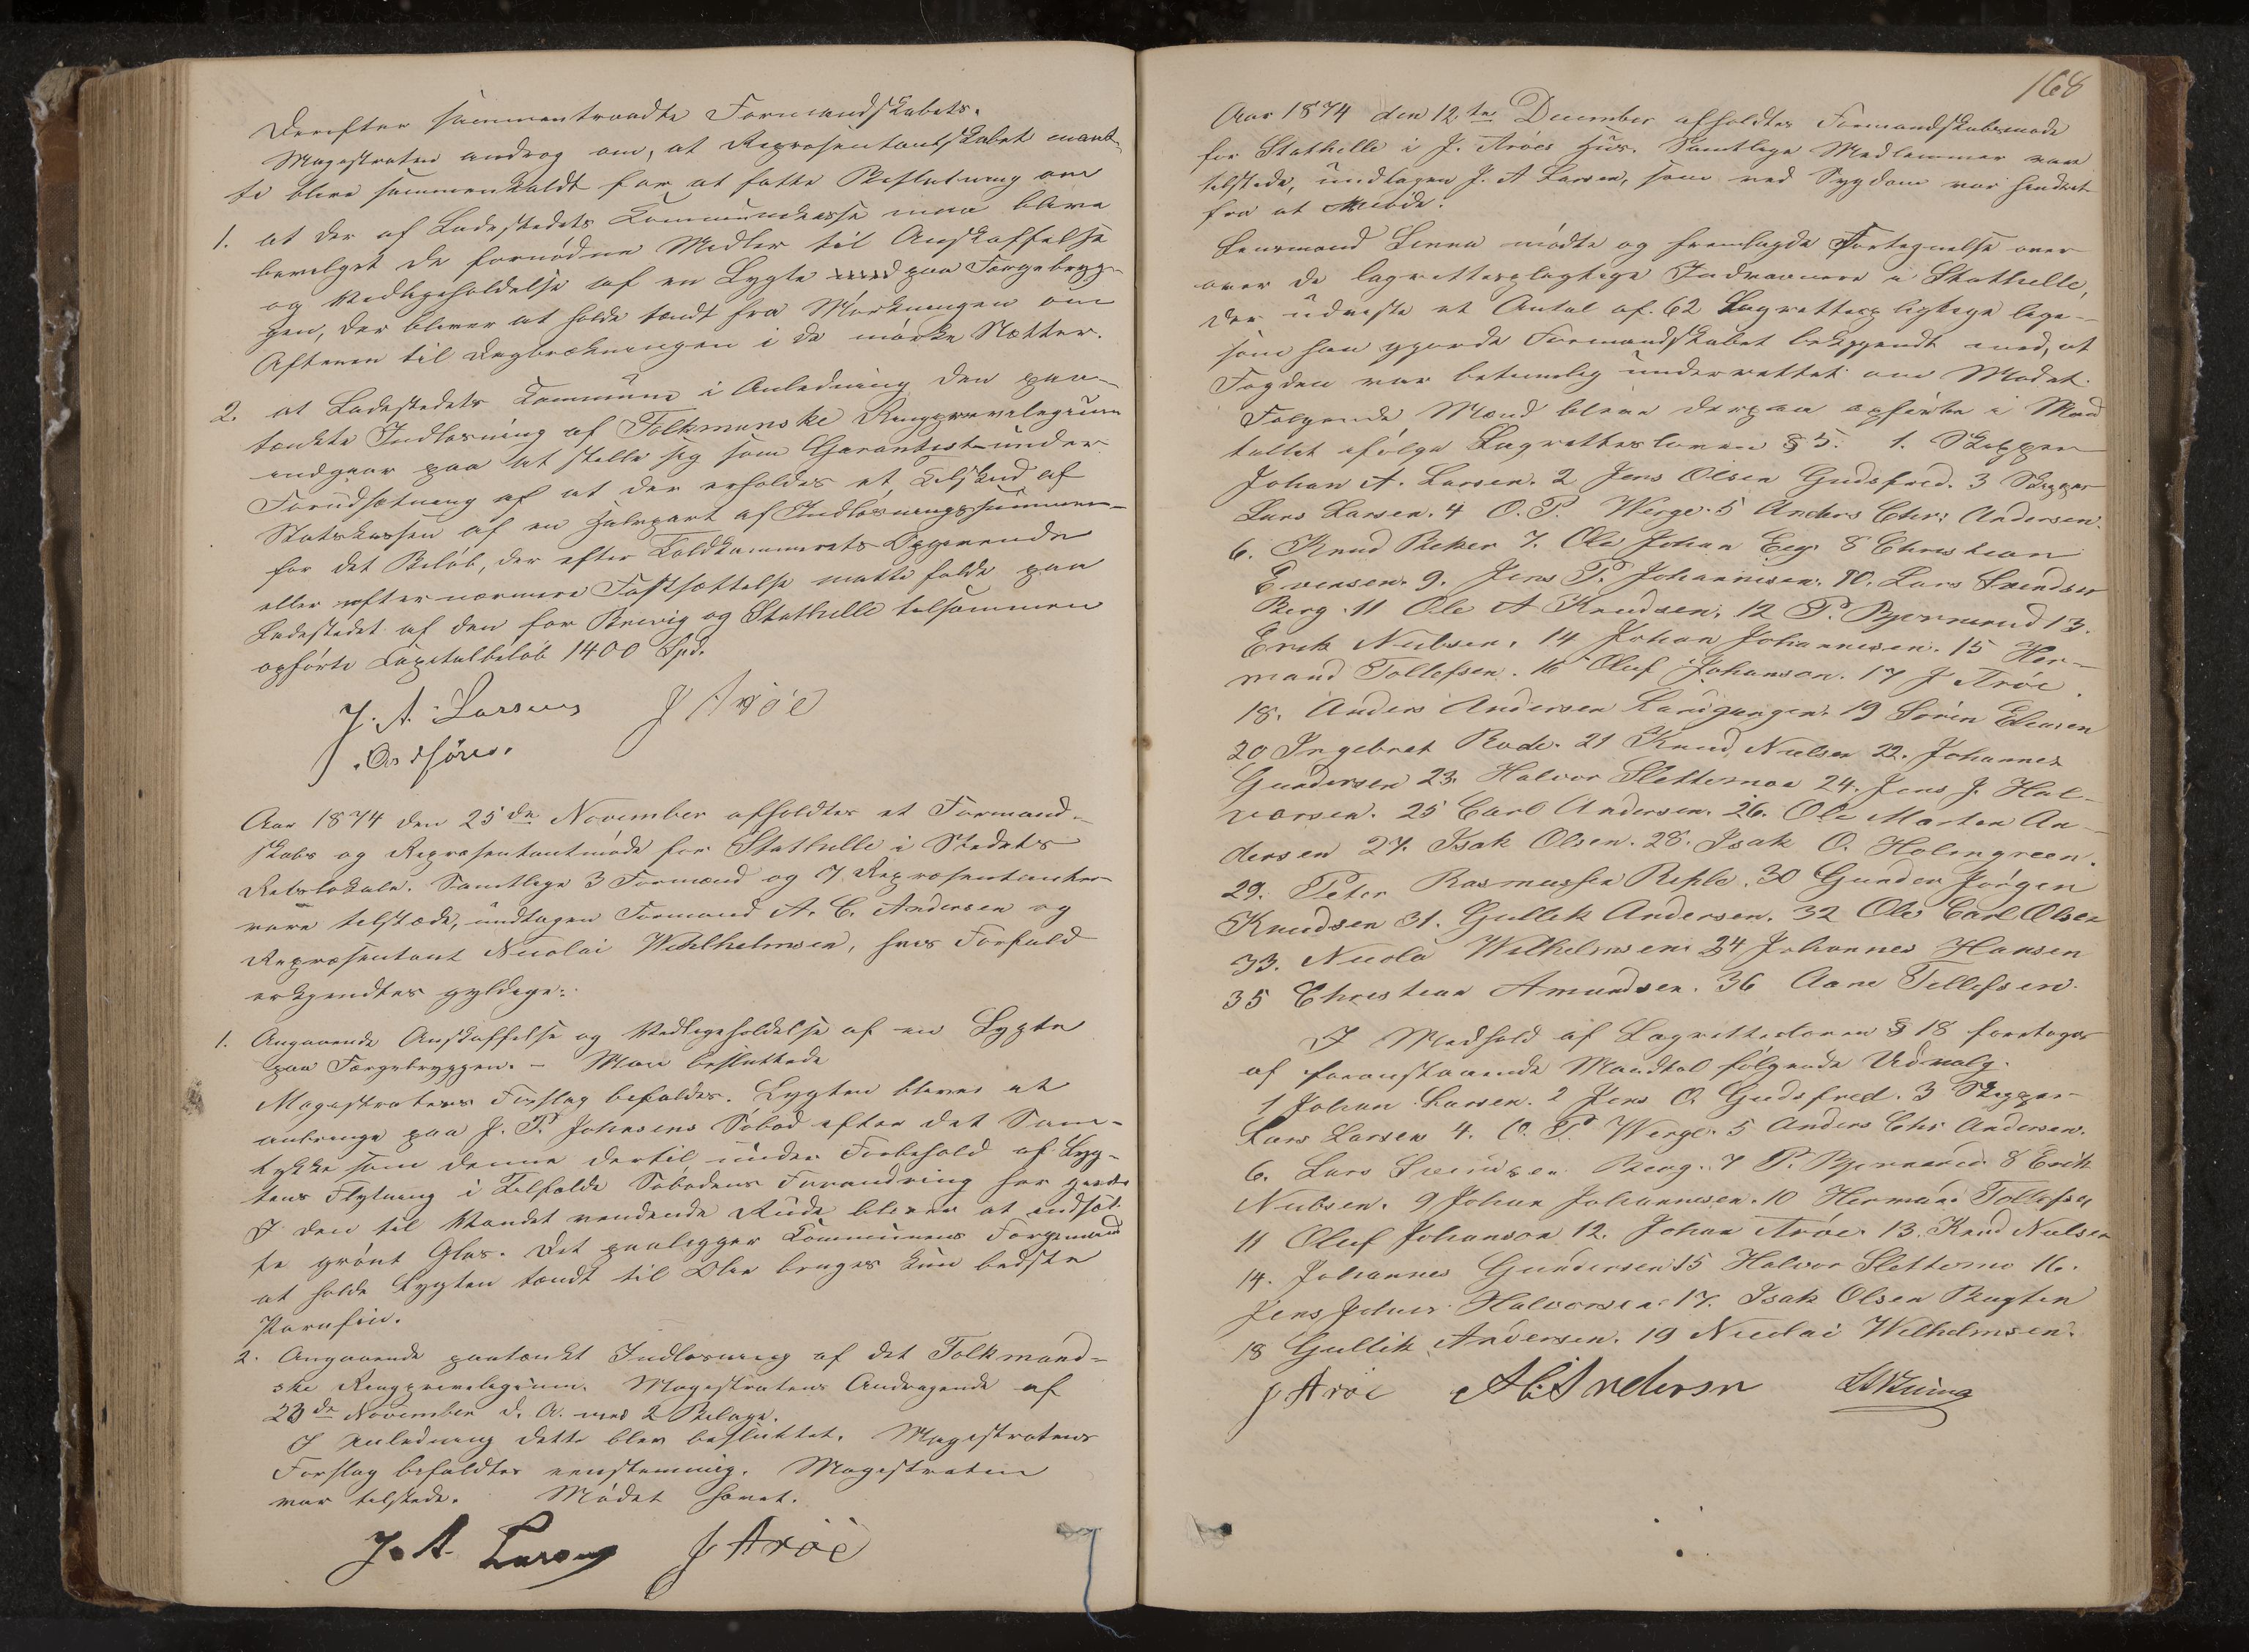 Derefter sammentraadte Formandskabet.
Magistraten androg om, at Repræsentantskabet maat-
te blive sammenkaldt for at fatte Beslutning om
1. at der af Ladestedets Kommunekasse maa blive
bevilget de fornødne Midler til Anskaffelse
og Vedligeholdelse af en Lygte paa Færgebryg-
gen, der bliver at holde tændt fra Mørkningen om
Aftenen til Dagbrækningen i de mørke Nætter.
2. at Ladestedets Kommune i Anledning den paa-
tænkte Indløsning af Folkmanske Bergprivilegium
indgaar paa at stille sig som Garantist under
Forudsætning af at der erholdes et Tilskud af
Statskassen af en Halvpart af Indløsningssummen
for det Beløb, der efter Toldkammerets Opgivende
eller efter nærmere Fastsættelse maatte falde paa
Ladestedet af den for Brevig og Stathelle tilsammen
opførte Kapitalbeløb 1400 Spd.
J. A. Larsen J Arøe
Ordfører.
Aar 1874 den 25de November afholdtes et Formand-
skabs og Repræsentantmøde for Stathelle i Stedets
Retslokale. Samtlige 3 Formænd og 7 Repræsentanter
vare tilstæde, undtagen Formand A. C. Andersen og
Repræsentant Nicolai Wilhelmsen, hvis Forfald
erkjendtes gyldige:
1. Angaaende Anskaffelse og Vedligeholdelse af en Lygte
paa Færgebryggen. – Man besluttede
Magistratens Forslag bifaldes. Lygten bliver at
anbringe paa J. P. Johnsens Søbod efter det Sam-
tykke som denne dertil under Forbehold af Lyg-
tens Flytning i Tilfælde Søbodens Forandring har givet.
I den til Vandet vendende Rude bliver at indsæt-
te grønt Glas. Det paalægger Kommunens Færgemand
at holde Lygten tændt til Olie bruges kun bedste
Parafin.
2. Angaaende paatænkt Indløsning af det Folkmand-
ske Bergprivilegium. Magistratens Andragende af
23de November d. A. med 2 Bilage.
I Anledning dette blev besluttet. Magistratens
Forslag bifaldtes eenstemmig. Magistraten
var tilstede. Mødet hævet.
J. A. Larsen J Arøe
168
Aar 1874 den 12te December afholdtes Formandskabsmøde
for Stathelle i J. Arøes Hus. Samtlige Medlemmer vare
tilstede, undtagen J. A Larsen, som ved Sygdom var hindret
fra at Møde.
Lensmand Linna mødte og fremlagde Fortegnelse over
over de lagrettespligtige Indvaanere i Stathelle,
der udviste et Antal af 62 Lagrettespligtige lige-
som han gjorde Formandskabet bekjendt med, at
Fogden var betimelig underrettet om Mødet.
Følgende Mænd bleve derpaa opførte i Man
tallet ifølge Lagrettesloven § 5. 1. Skipper
Johan A. Larsen. 2 Jens Olsen Gudsfred. 3 Skipper
Lars Larsen. 4 O. P. Werge. 5 Anders Chr: Andersen.
6. Knud Reker 7. Ole Johan Eeg. 8 Christian
Evensen. 9. Jens P. Johannesen. 10. Lars Svendsen
Berg. 11 Ole A Knudsen. 12 P. Bjernerud 13.
Erik Nielsen. 14 Johan Johannesen. 15 Her-
mand Tollefsen. 16 Oluf Johanson. 17 J Arøe.
18. Anders Andersen Landgangen. 19 Søren Eliasen
20 Ingebret Rode. 21 Knud Nielsen 22. Johannes
Gundersen 23. Halvor Slettemoe 24. Jens J. Hal-
vorsen. 25 Carl Andersen. 26. Ole Marten An-
dersen 27. Isak Olsen. 28. Isak O. Holmgreen.
29. Peter Rasmussen 30 Gunder Jørgen
Knudsen 31. Gullik Andersen. 32 Ole Carl Olsen
33. Nicola Wilhelmsen 34 Johannes Hansen
35 Christian Amundsen. 36 Aane Tellefsen.
I Medhold af Lagrettesloven § 18 foretoges
af foranstaaende Mandtal følgende Udvalg.
1 Johan Larsen. 2 Jens O. Gudsfred. 3 Skipper
Lars Larsen 4. O. P. Werge. 5 Anders Chr Andersen.
6. Lars Svendsen Berg. 7 P. Bjernerud 8 Erik
Nielsen. 9 Johan Johannesen. 10 Herman Tollefsen
11 Oluf Johanson 12. Johan Arøe. 13. Knud Nielsen
14. Johannes Gundersen 15 Halvor Slettemo 16.
Jens Johnes Halvorsen. 17. Isak Olsen Bugten
18 Gullik Andersen. 19 Nicolai Wilhelmsen.
J Arøe A C Andersen